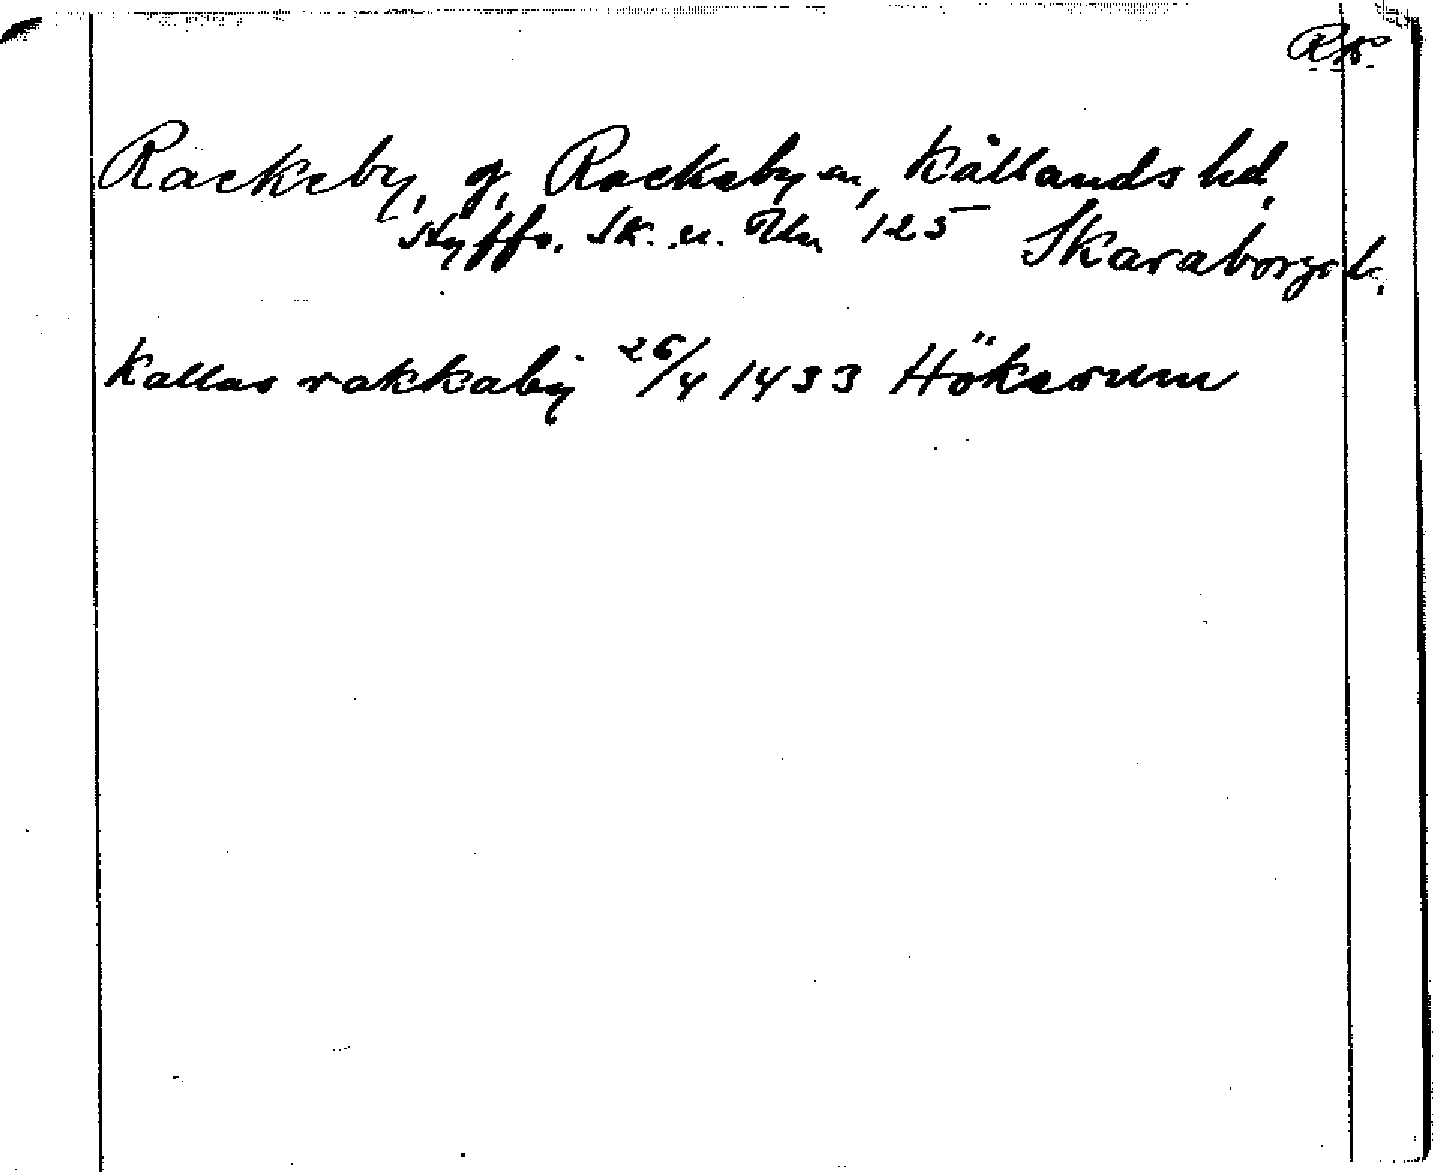 Rackeby, g, Rackeby sn, Kållands hd,
Styffe. Sk. u. Un 125 Skaraborgs l.
Kallas rakkaby 26/4 1433 Hökerum